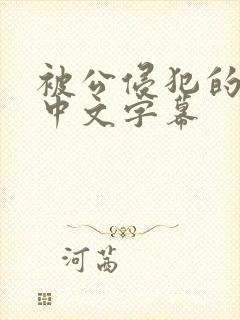 被公侵犯的
中文字幕
河茜